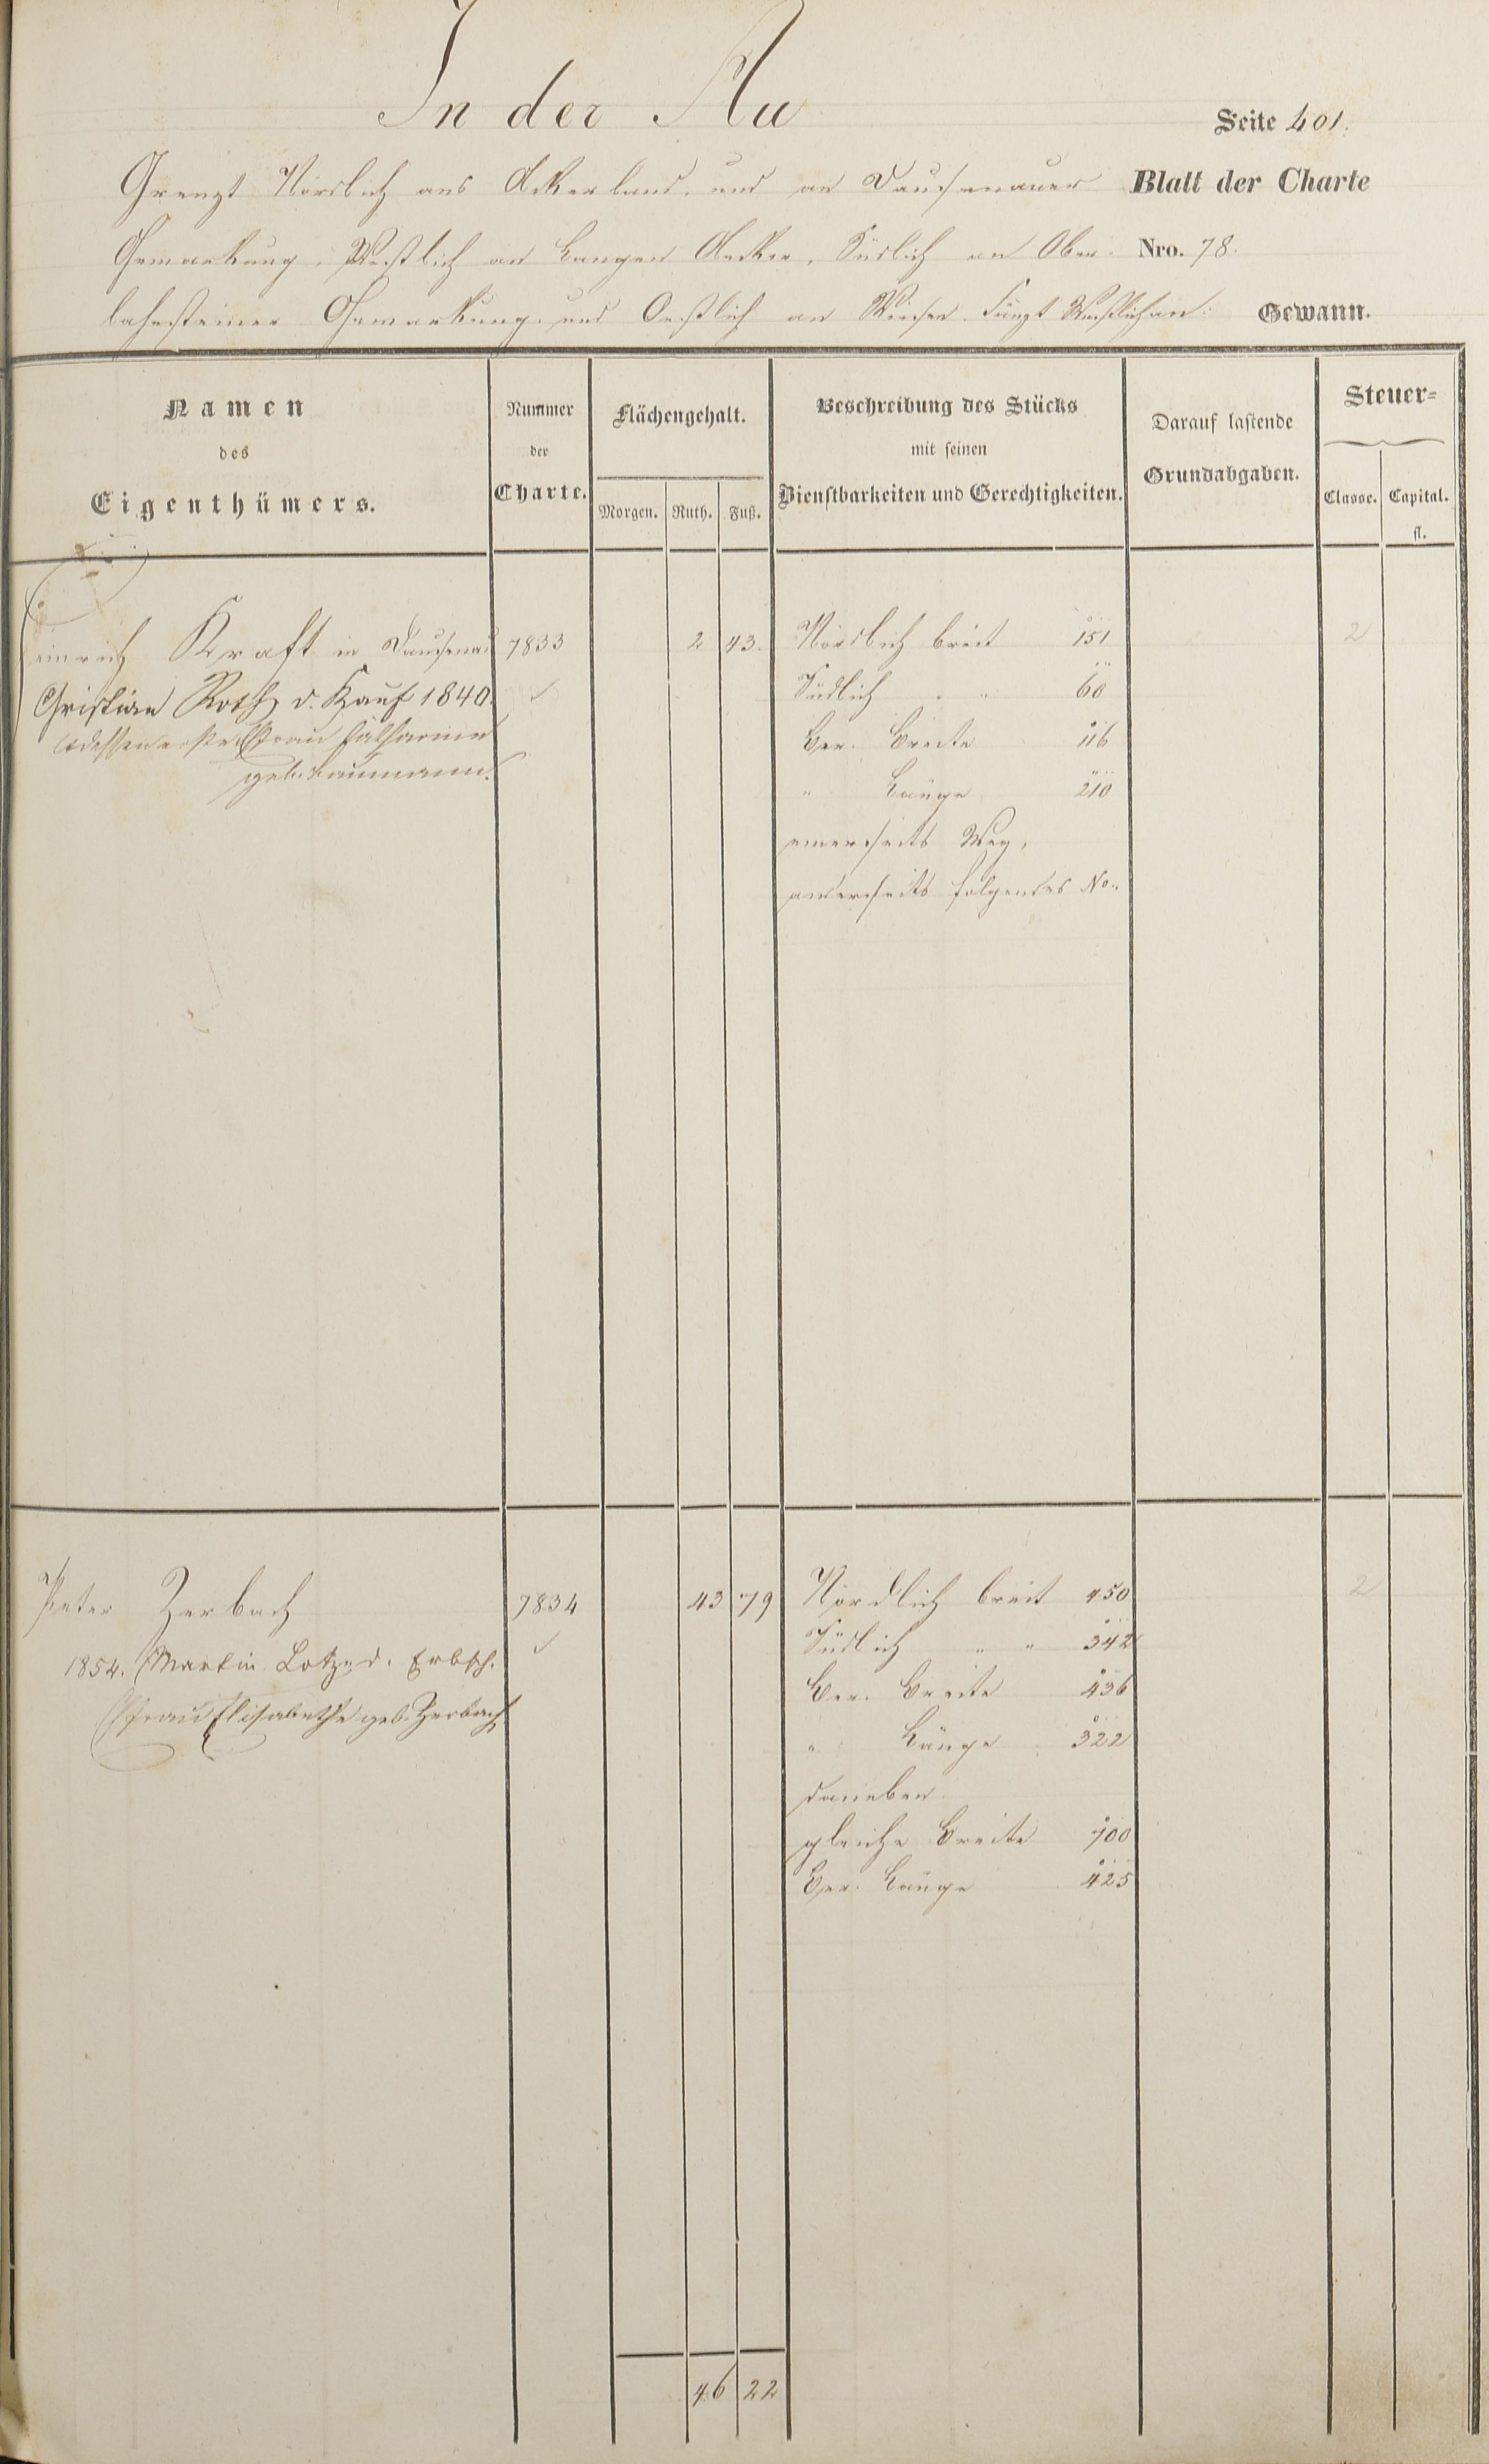 In der Au
Seite 401.
Grenzt Nördlich ans Ackerland. und an Dausenauer
Blatt der Charte
Gemarkung, Westlich an Langen Aecker, Südlich an Ober-
Nro. 78.
lahnsteiner Gemarkung. und Oestlich an Wiesen. Fängt Westlich an.
Gewann.
Namen
des
Eigenthümers.
Nummer
der
Charte.
Flächengehalt.
Morgen. Ruth. Fuß.
Beschreibung des Stücks
mit seinen
Dienstbarkeiten und Gerechtigkeiten.
Darauf lastende
Grundabgaben.
Steuer-
Classe. Capital.
fl.
Heinrich Kraft in Dausenau 7833 2 43. Nördlich breit 151 2
Christian Roth d. Kauf 1840. Südlich " " 60
Ber. Breite 116
geb. Baumann.
" Länge 210
einerseits Weg,
anderseits folgendes No.
Peter Zerbach 7834 43 79 Nördlich breit 450 2
1854. Martin Lotz d. Erbsch. Südlich " " 342
Ehfrau Elisabethe geb. Zerbach Ber. Breite 436
" Länge 322
daneben
gleiche Breite 700
Ber. Länge 425
46 22